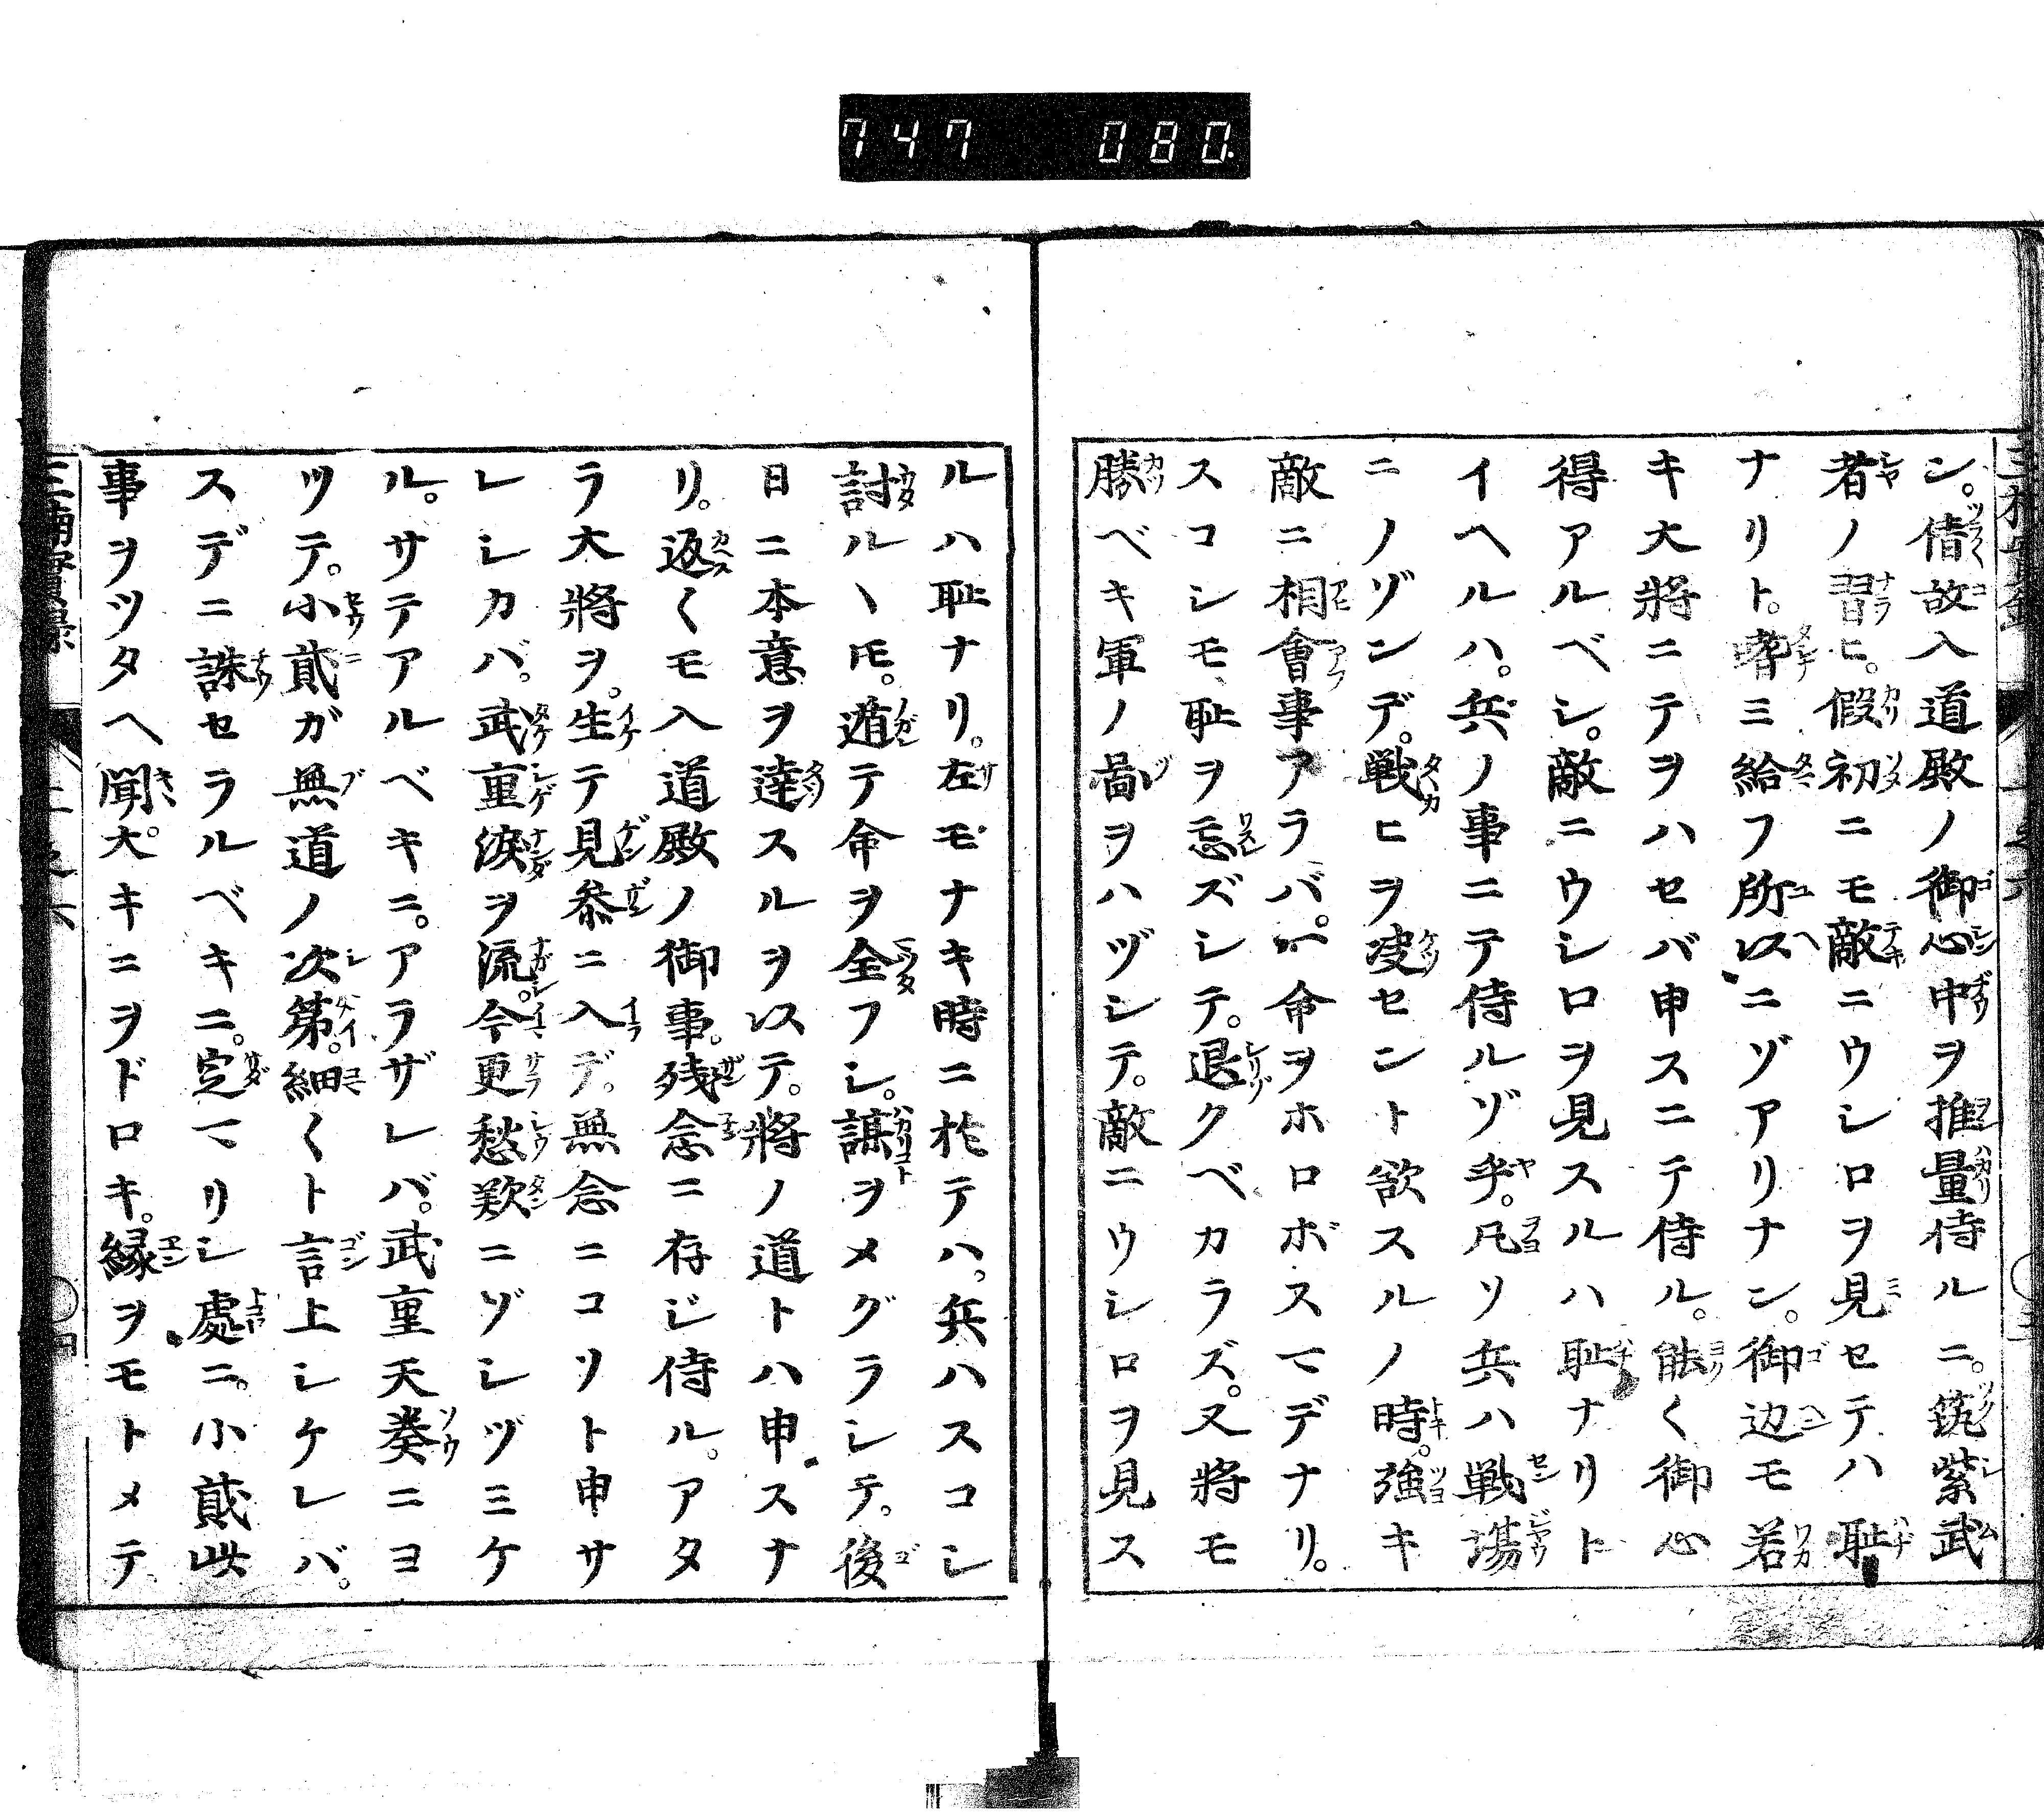 747 080.
ン。倩故入道殿ノ御心中ヲ推量侍ルニ。筑紫武
者ノ習ヒ。假初ニモ敵ニウシロヲ見セテハ恥
ナリト。嗜ミ給フ所以ニゾアリナン。御辺モ若
キ大將ニテヲハセバ申スニテ侍ル。能く御心
得アルベシ。敵ニウシロヲ見スルハ恥ナリト
イヘルハ。兵ノ事ニテ侍ルゾ乎。凡ソ兵ハ戦場
ニノゾンデ。戦ヒヲ决セント欲スルノ時。強キ
敵ニ相會事アラバ。一命ヲホロボスマデナリ。
スコシモ恥ヲ忘ズシテ。退クベカラズ。又將モ
勝ベキ軍ノ啚ヲハヅシテ。敵ニウシロヲ見ス
ルハ恥ナリ。左モナキ時ニ於テハ。兵ハスコシ
討ルヽ𪜈。遁テ命ヲ全フシ。謀ヲメグラシテ。後
日ニ本意ヲ達スルヲ以テ。將ノ道トハ申スナ
リ。返くモ入道殿ノ御事。残念ニ存ジ侍ル。アタ
ラ大將ヲ。生テ見参ニ入デ。無念ニコソト申サ
レシカバ。武重涙ヲ流。今更愁歎ニゾシヅミケ
ル。サテアルベキニ。アラザレバ。武重天奏ニヨ
ツテ。小貳ガ無道ノ次第。細くト言上シケレバ。
スデニ誅セラルベキニ。定マリシ處ニ。小貳此
事ヲツタヘ聞。大キニヲドロキ。縁ヲモトメテ